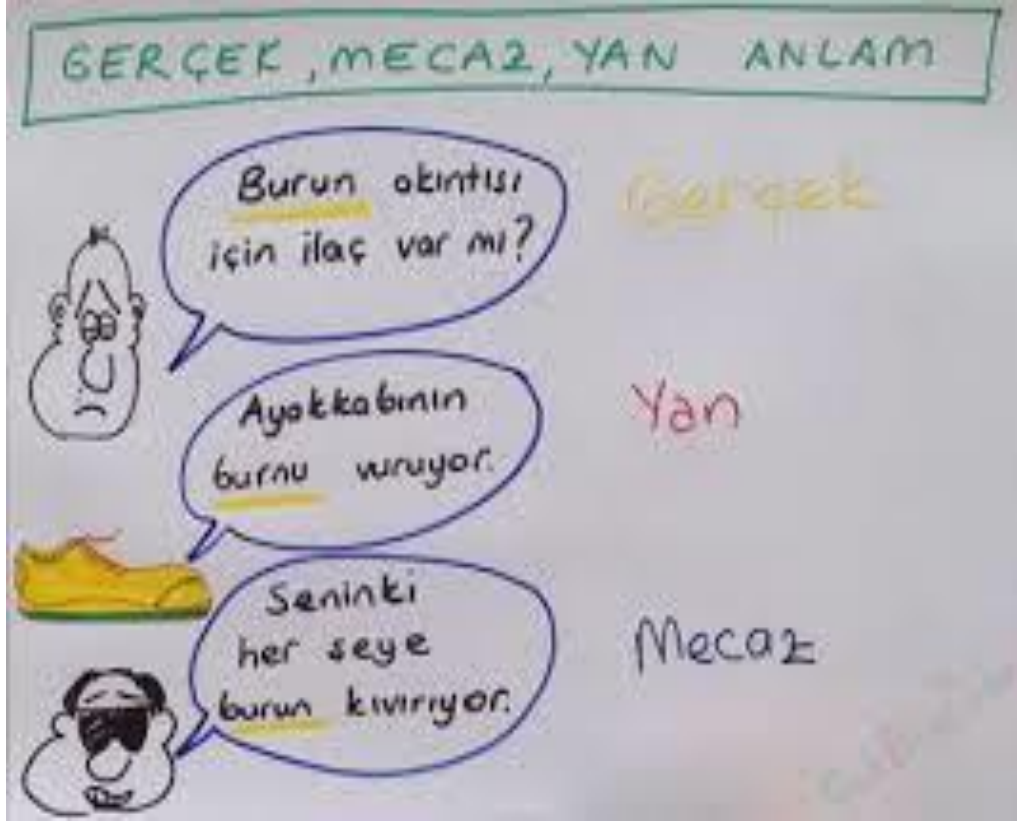 GERÇEK, MECAZ, YAN ANLAM
Burun akıntısı
için ilaç var mı?
Gerçek
Ayakkabının
burnu vuruyor.
Yan
Seninki
her şeye
burun kıvırıyor.
Mecaz